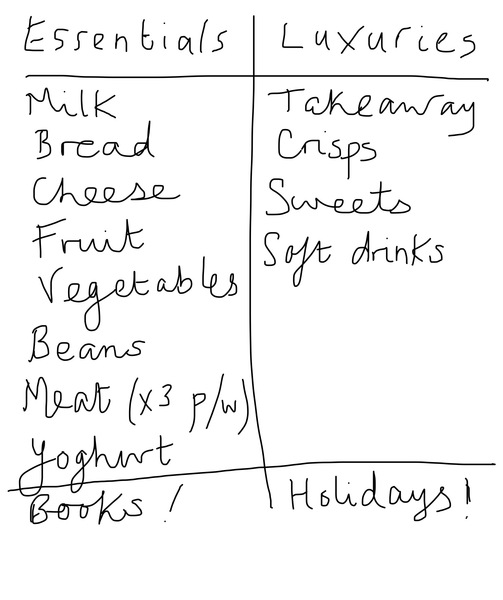 Essentials
Milk
Bread
Cheese
Fruit
Vegetables
Beans
Meat (x3 p/w)
Yoghurt
Books!
Luxuries
Takeaway
Crisps
Sweets
Soft drinks
Holidays!